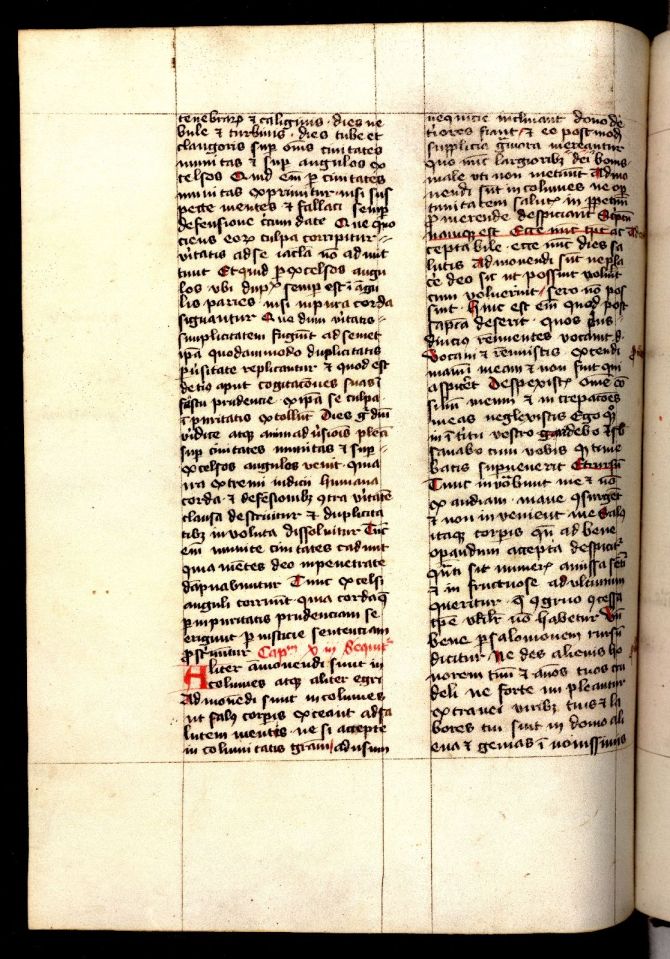 tenebrarꝫ ⁊ caliginis · dies ne
bule ⁊ turbinis · dies tube et
clangoris sup̄ om̄s ciuitates
munitas ⁊ sup̄ angulos ex
celsos Quid em̄ ꝑ ciuitates
munitas exprimitur nisi sus
pecte mentes ⁊ fallaci semꝑ
defensione circūdate Que quo
ciens eoꝝ culpa corripitur
vitatis ad se iacla nō admit
tunt Et quid ꝑ excelsos angu
los vbi dupꝉ semp est ī āgu
lis paries · nisi inpura corda
signantur Que dum vitatis
simplicitatem fugiūt ad semet
ipā quodammodo duplicitatis
ꝑusitate replicantur ⁊ quod est
deteꝰ apud cogitacōnes suas ī
fastu prudencie ex ipā se culpa
ī puritatis extollūt Dies g° dn̄i
vīdicte atqꝫ animaduersiōis plen̄
sup ciuitates munitas ⁊ sup
excelsos angulos venit · quia
ira extremi iudicii humana
corda ⁊ defensionibꝫ ꝯtra vitatē
clausa destruitur ⁊ duplicita
tibꝫ inuoluta dissoluitur Tūc
em̄ munite ciuitates cadunt
quia mentes deo inpenetrate
dāpnabuntur Tunc excelsi
anguli corruūt · quia corda q̄
ꝑ inpuritatis prudenciam se
erigunt ꝑ iusticie sentenciam
ꝓsternuntur Capᵐ xiii Sequitᵣ
Aliter āmonendi sunt in
columes atqꝫ aliter egri
Admonēdi sunt incolumes
ut salꝰ corpis exceant ad sa
lutem mentis · ne si accepte
incolumitatis grām / ad usum
nequicie inclinant dono de
tiores fiant / ⁊ eo postmod
supplicia grauiora mereantur
quo nūc largioribꝫ dei bonis
male vti non metuūt Admo
nendi sūt incolumes ne opor
tunitatem salutꝭ in ꝑpetuū
ꝓmerende despiciant Scptū
namqꝫ est Ecce nūc tp̄c ac
ceptabile · ecce nūc dies sa
lutis Admonendi sūt ne pla
ce deo sic ut possint volūt
cum voluerint / sero nō pos
sint · Hinc est em̄ quod post
sapīa deserit · quos pus
diucius renuentes vocauit d.
Vocaui ⁊ rennuistis extendi
manū meam ⁊ non fuit qui
aspiceret Despexistꝭ om̄e cō
siliū meum ⁊ increpacōes
meas neglexistis Ego qꝫ
in ītitu vestro gaudebo ⁊ sb
sanabo cum vobis qd time
batis supuenerit Et rursū
Tunc inuocabunt me ⁊ nō
exaudiam · mane ꝯsurget
⁊ non inuenient me Salꝰ
itaqꝫ corpis qn̄ ad bene
opandum accepta despicit̄
qn̄ti sit munerꝭ amissa senti
⁊ infructuose ad ultimum
queritur · q̄ ꝯgruo ꝯcessa
tp̄e vtilr̄ nō habetur Vn̄
bene ꝑ salomonem rursū
dicitur · Ne des alienis ho
norem tuū ⁊ anos tuos cru
deli ne forte impleantur
extranei viribꝫ tuis ⁊ la
bores tui sint in domo ali
ena ⁊ gemas ī nouissimis